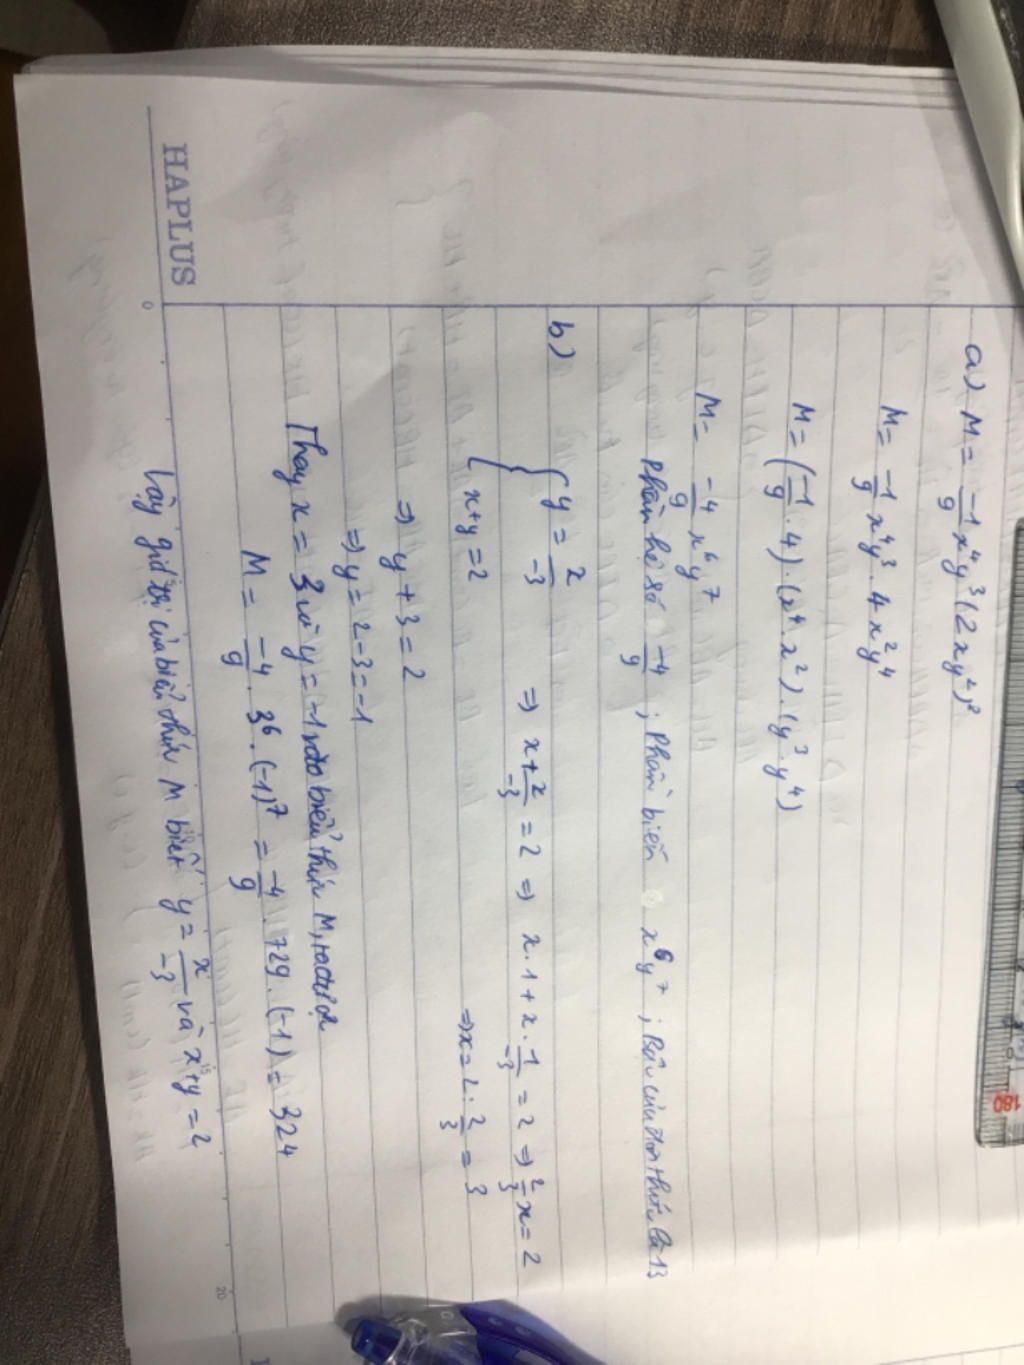 HAPLUS
a) M = -1/9 x⁴y³(2xy²)²
M = -1/9 x⁴y³ . 4x²y⁴
M = (-1/9 . 4) . (x⁴.x²) . (y³.y⁴)
M = -4/9 x⁶y⁷
Phần hệ số -4/9 ; Phần biến x⁶y⁷ ; Bậc của đơn thức là 13
b) { y = x/-3 ⇒ x + x/-3 = 2 ⇒ x.1 + x.1/-3 = 2 ⇒ 2/3 x = 2
{ x+y = 2 ⇒ x = 2 : 2/3 = 3
⇒ y + 3 = 2
⇒ y = 2-3 = -1
Thay x = 3 và y = -1 vào biểu thức M, ta được
M = -4/9 . 3⁶ . (-1)⁷ = -4/9 . 729 . (-1) = 324
Vậy giá trị của biểu thức M biết y = x/-3 và x+y = 2
0
15
20
180